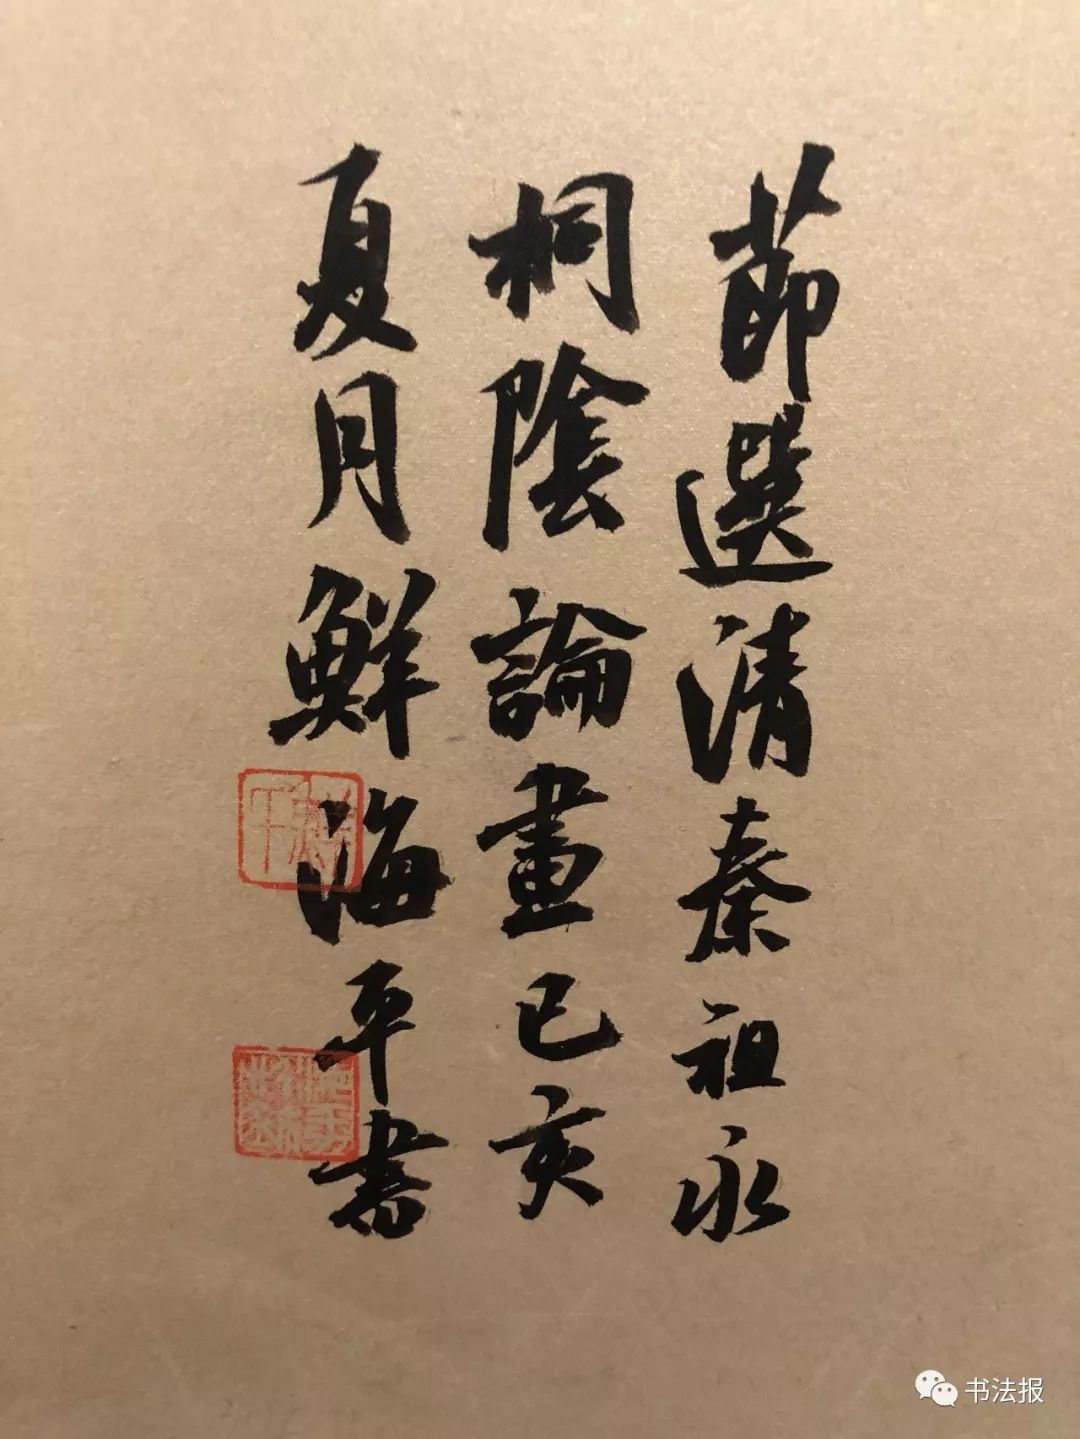 節選清秦祖永
桐陰論畫己亥
夏月鮮海平書
书法报